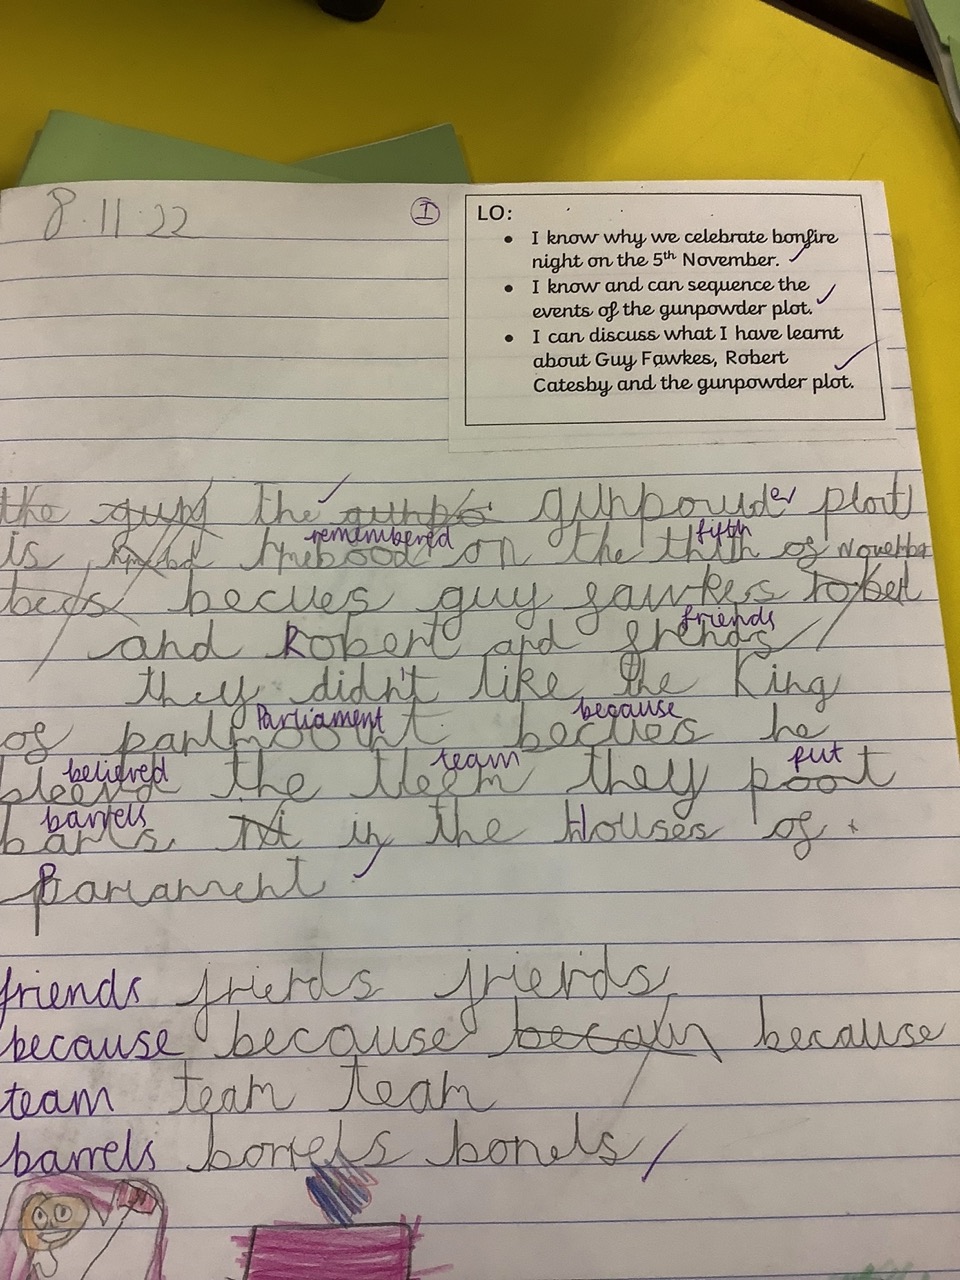 8.11.22
I
LO:
• I know why we celebrate bonfire
night on the 5th November.
• I know and can sequence the
events of the gunpowder plot.
• I can discuss what I have learnt
about Guy Fawkes, Robert
Catesby and the gunpowder plot.
the guny the gunpo gunpowder plot
remembered fifth
is on the thith of November
becs becues guy fawkes robert
friends
and Robert and frends
they didn't like the King
Parliament because
of becues he
believed team put
the they poot
barrels
barls in the Houses of
Parlament
friends friends friends
because because because
team team team
barrels borrels borrels